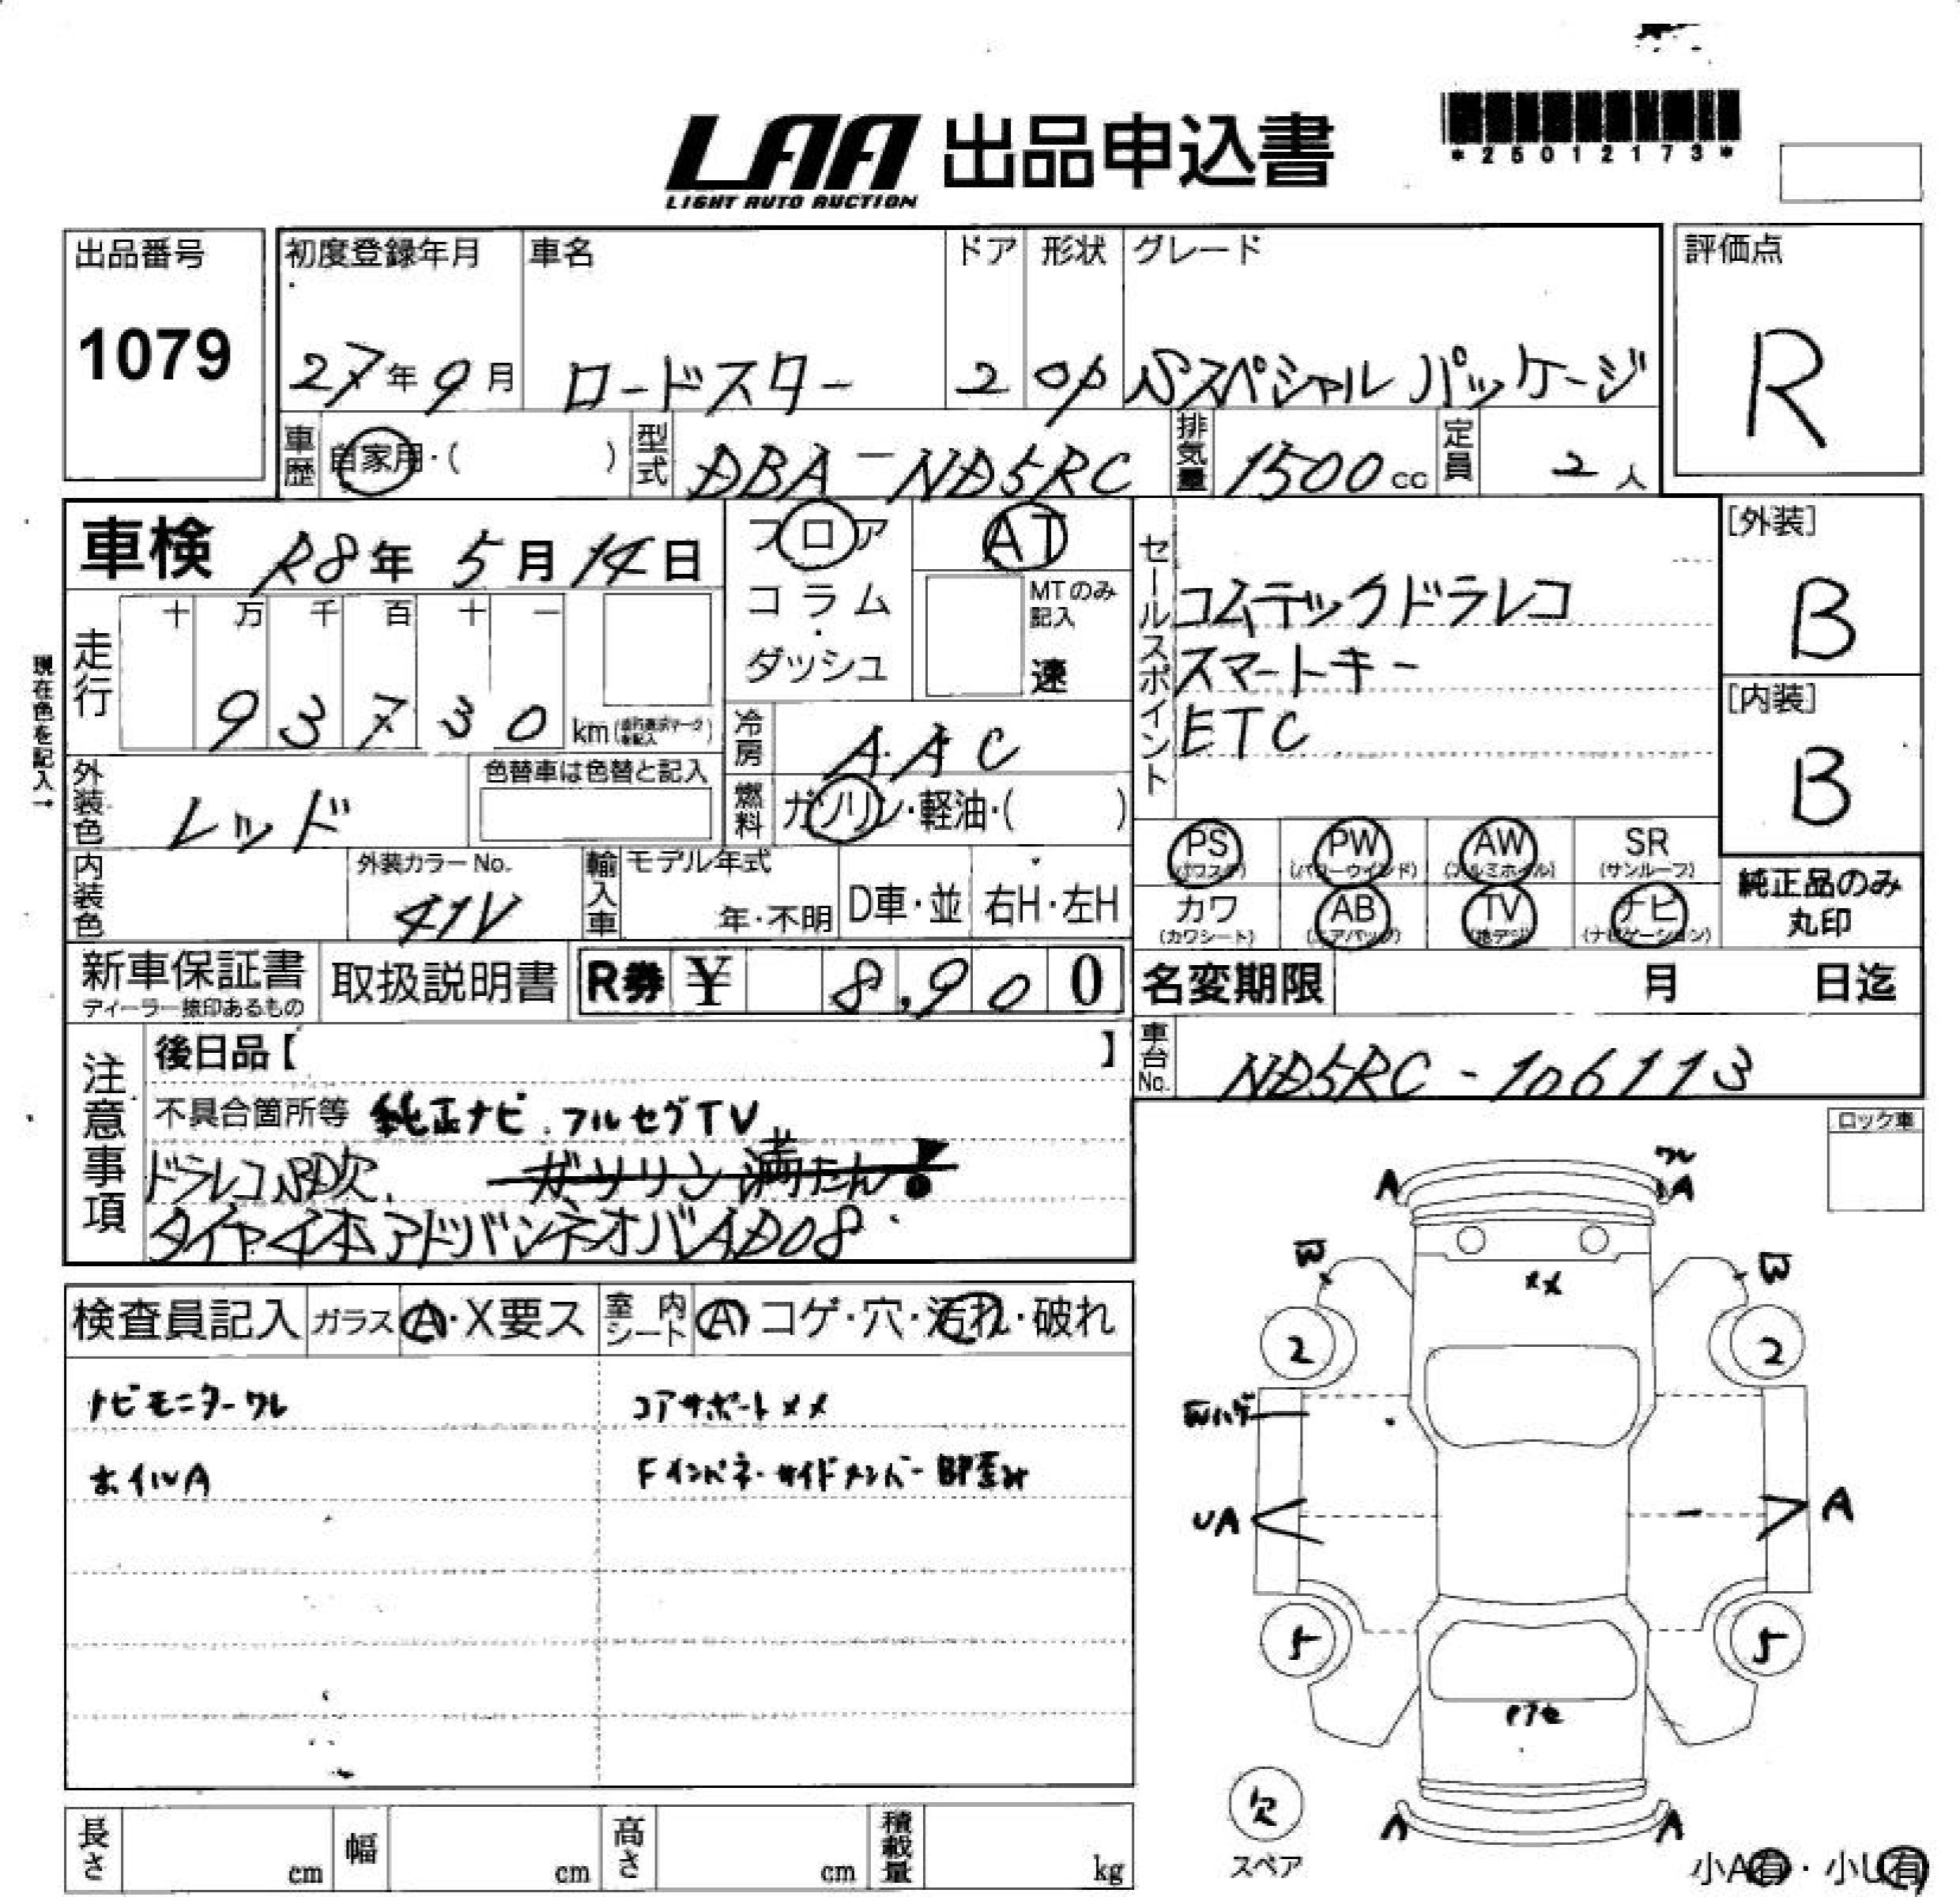 LAA 出品申込書
LIGHT AUTO AUCTION
*25012173*
出品番号
1079
初度登録年月
27年9月
車名
ロードスター
ドア
2
形状
OP
グレード
Sスペシャルパッケージ
評価点
R
車歴
自家用・( )
型式
DBA-ND5RC
排気量
1500cc
定員
2人
車検 R8年 5月 14日
フロア
コラム
・
ダッシュ
AT
MTのみ
記入
速
セールスポイント
コムテックドラレコ
スマートキー
ETC
[外装]
B
[内装]
B
現在色を記入→
走行
十 万 千 百 十 一
9 3 7 3 0 km
冷房
AAC
燃料
ガソリン・軽油・( )
外装色
レッド
色替車は色替と記入
内装色
外装カラーNo.
41V
輸入車
モデル年式
年・不明
D車・並
右H・左H
PS
(パワステ)
PW
(パワーウインド)
AW
(アルミホイル)
SR
(サンルーフ)
カワ
(カワシート)
AB
(エアバッグ)
TV
(地デジ)
ナビ
(ナビゲーション)
純正品のみ
丸印
新車保証書
ディーラー捺印あるもの
取扱説明書
R券 ¥ 8,900
名変期限 月 日迄
車台No.
ND5RC-106113
注意事項
後日品【 】
不具合箇所等 純正ナビ.フルセグTV
ドラレコSD欠. ガソリン満たん!
タイヤ4本アドバンネオバAD08
ロック車
検査員記入
ガラス
A・X要ス
室内シート
A コゲ・穴・汚れ・破れ
ナビモニターワレ
コアサポートメメ
ホイルA
Fインパネ・サイドメンバー部歪み
A
ワレ
A
W
W
メメ
2
2
ハゲ
UA
A
5
5
欠
スペア
A
A
小A有・小U有
長さ
cm
幅
cm
高さ
cm
積載量
kg